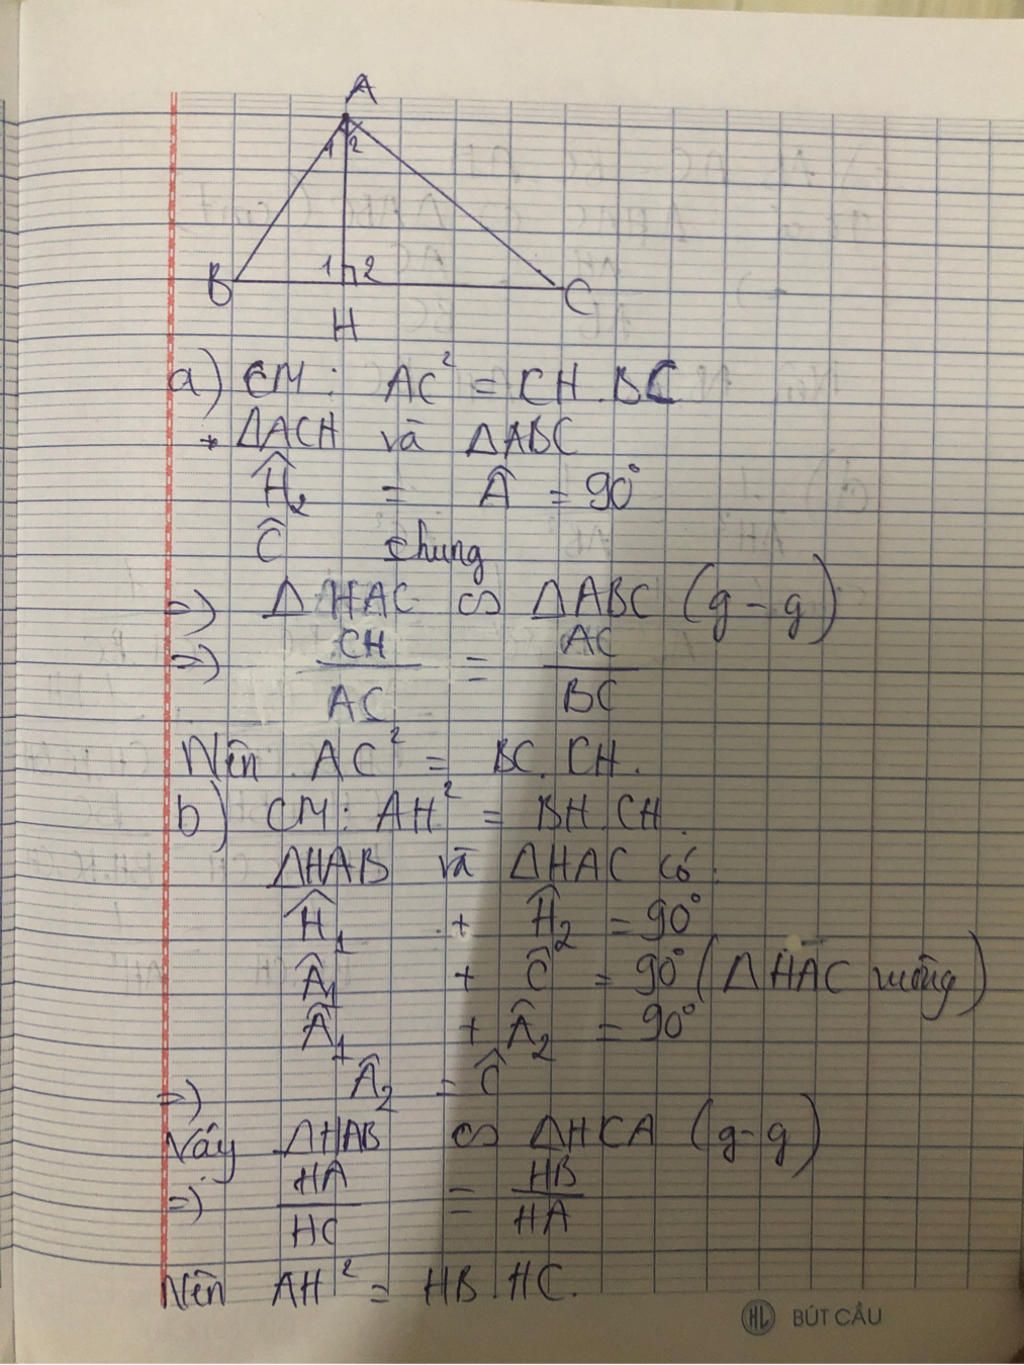 A
1 2
B 1 2 C
H
a) CM: AC² = CH.BC
* ΔACH và ΔABC
Ĥ₂ = Â = 90°
Ĉ chung
=> ΔHAC ∽ ΔABC (g-g)
=> CH/AC = AC/BC
Nên AC² = BC.CH.
b) CM: AH² = BH.CH.
ΔHAB và ΔHAC có:
Ĥ₁ + Ĥ₂ = 90°
Â₁ + Ĉ = 90° (ΔHAC vuông)
Â₁ + Â₂ = 90°
=> Â₂ = Ĉ
Vậy ΔHAB ∽ ΔHCA (g-g)
=> HA/HC = HB/HA
Nên AH² = HB.HC.
HL BÚT CÂU